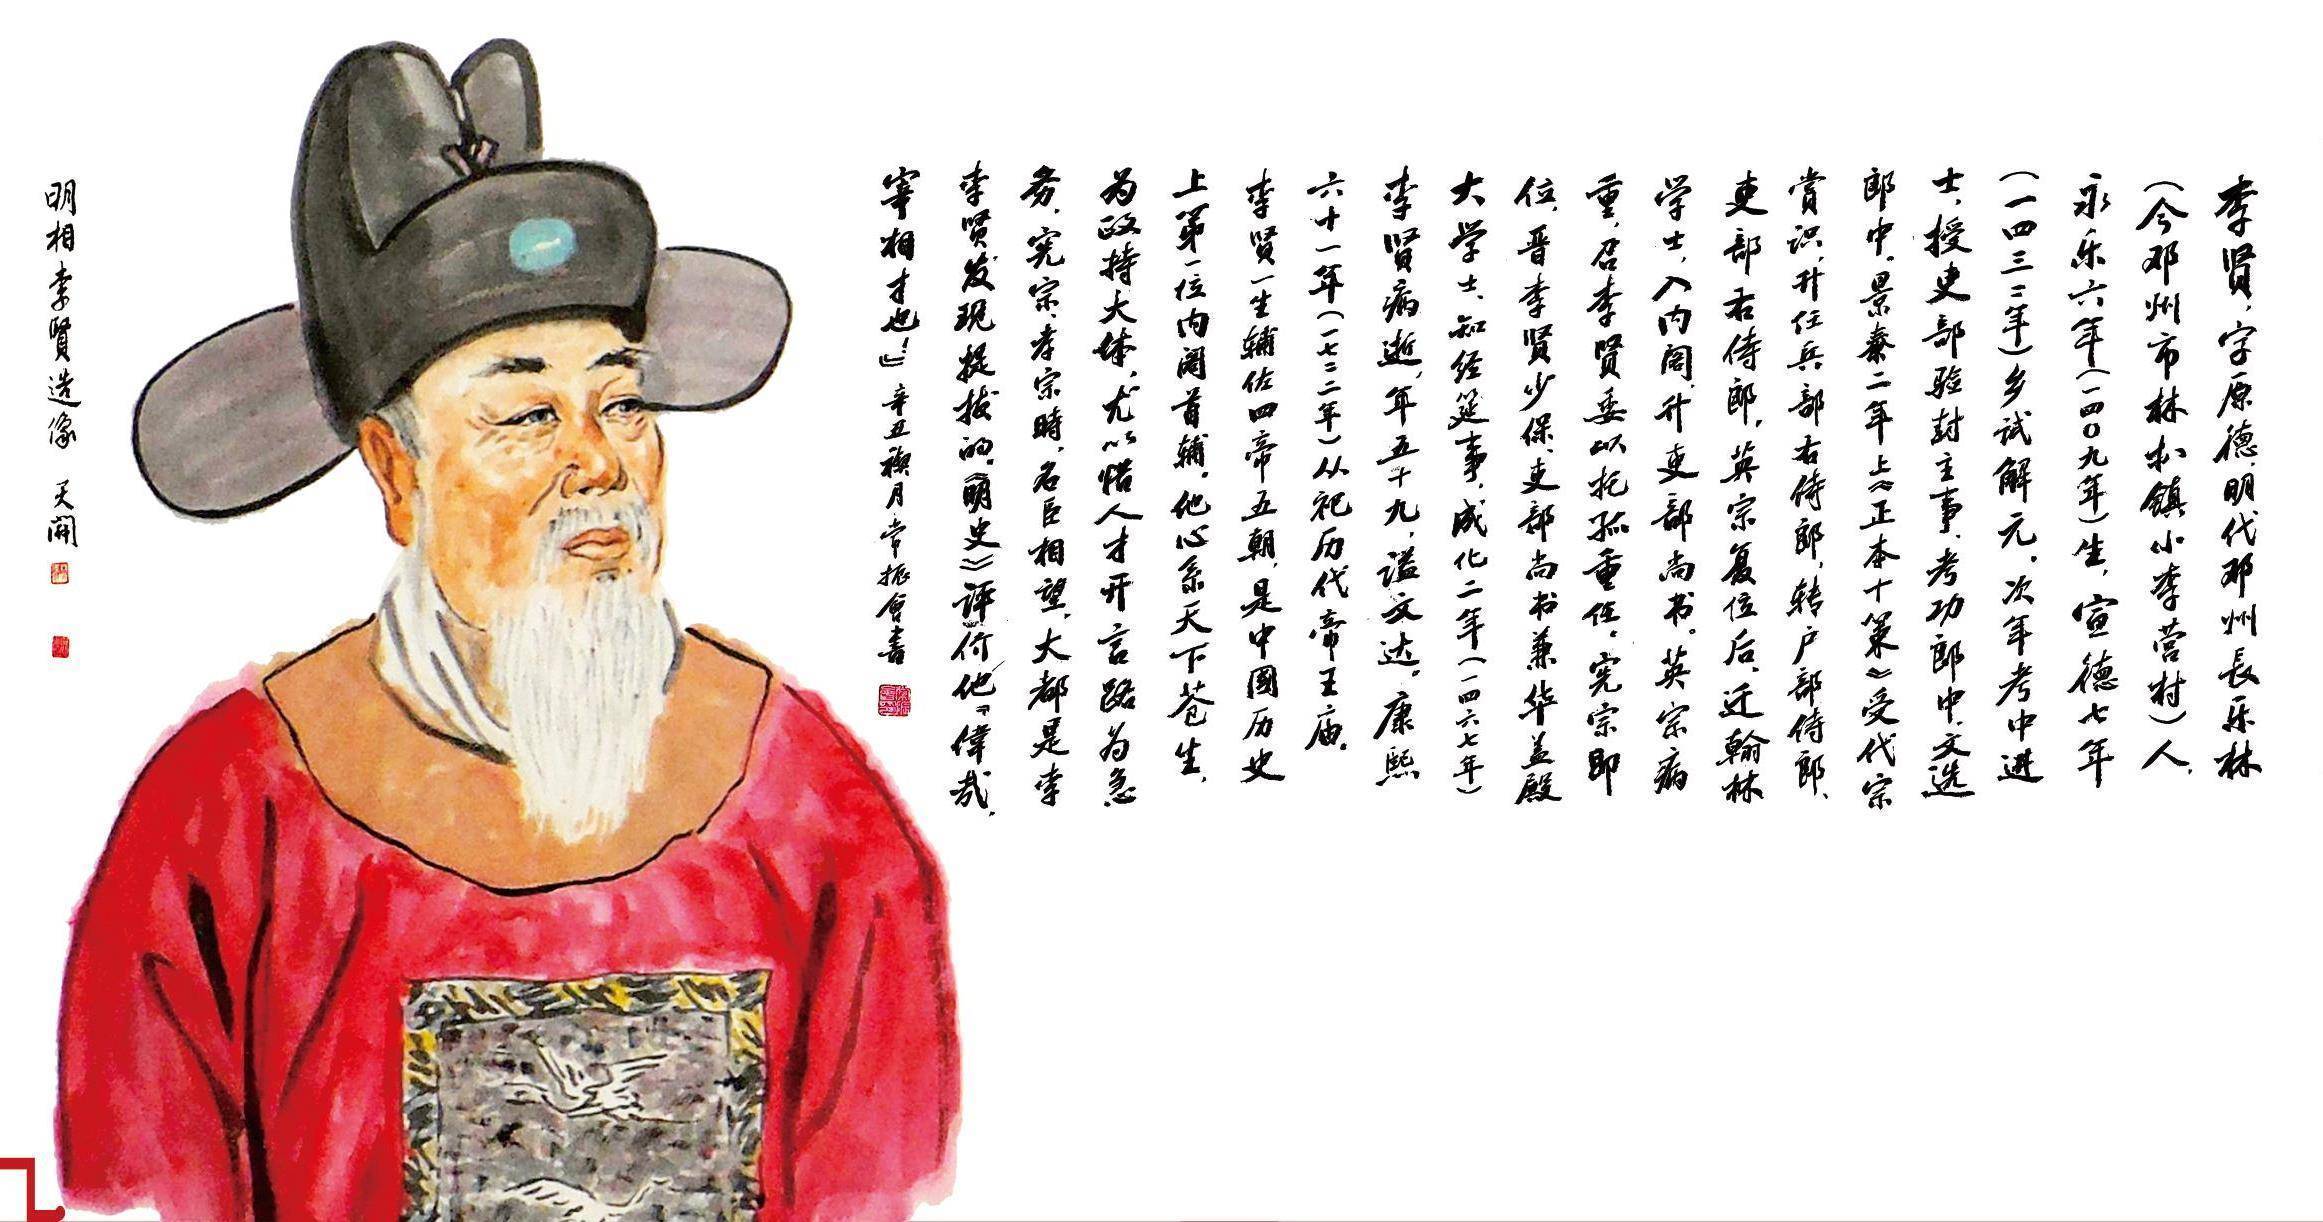 李贤，字原德，明代邓州长乐林
（今邓州市林扒镇小李营村）人，
永乐六年（一四〇九年）生，宣德七年
（一四三二年）乡试解元，次年考中进
士，授吏部验封主事，考功郎中、文选
郎中，景泰二年上《正本十策》受代宗
赏识，升任兵部右侍郎，转户部侍郎，
吏部右侍郎，英宗复位后，迁翰林
学士，入内阁，升吏部尚书。英宗病
重，召李贤委以托孤重任，宪宗即
位，晋李贤少保、吏部尚书兼华盖殿
大学士、知经筵事，成化二年（一四六七年）
李贤病逝，年五十九，谥文达。康熙
六十一年（一七二二年）从祀历代帝王庙。
李贤一生辅佐四帝五朝，是中國历史
上第一位内阁首辅。他心系天下苍生，
为政持大体，尤以惜人才开言路为急
务，宪宗、孝宗時，名臣相望，大都是李
李贤发现提拔的，《明史》评价他『偉哉，
宰相才也！』 辛丑 月 常振會書
明相李賢造像 天開